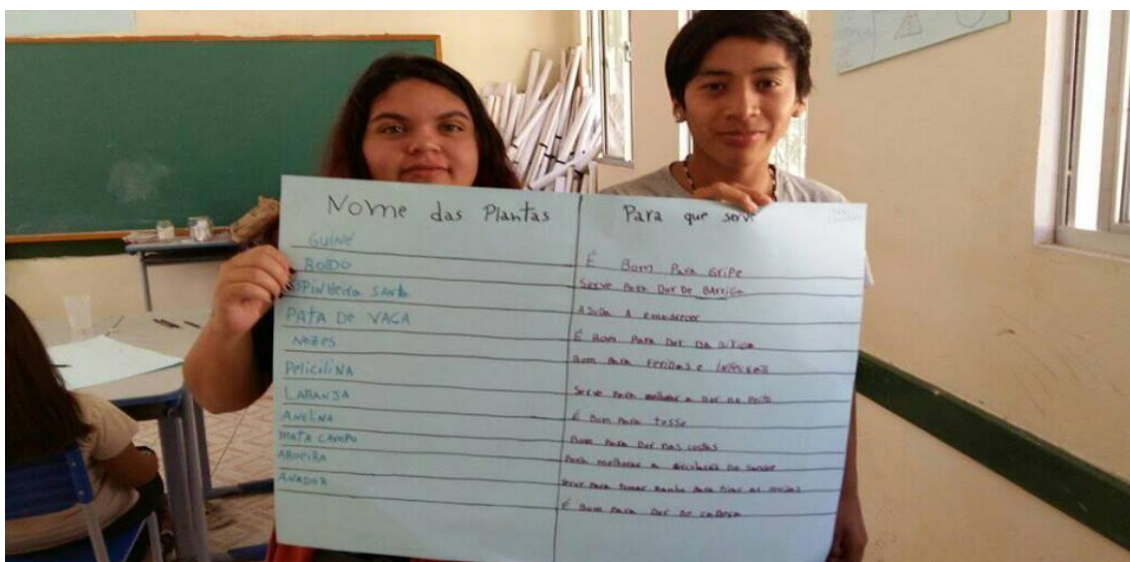 Nome das Plantas Para que serve
GUINÉ É Bom Para GriPe
BOLDO Serve Para Dor De Barriga
ESPinheira SANta AJUDA A emagrecer
PATA De VACA É Bom Para Dor Da
Bom Para Feridas e
PeliciliNA Serve Para melhorar a Dor no Peito
LARANJA É Bom Para tosse
ANeliNA Bom Para Dor nas costas
mata campo Para melhorar a Do sangue
AROEIRA Serve Para Tomar Banho Para tirar as feridas
ANADOR É Bom Para Dor De caBeça